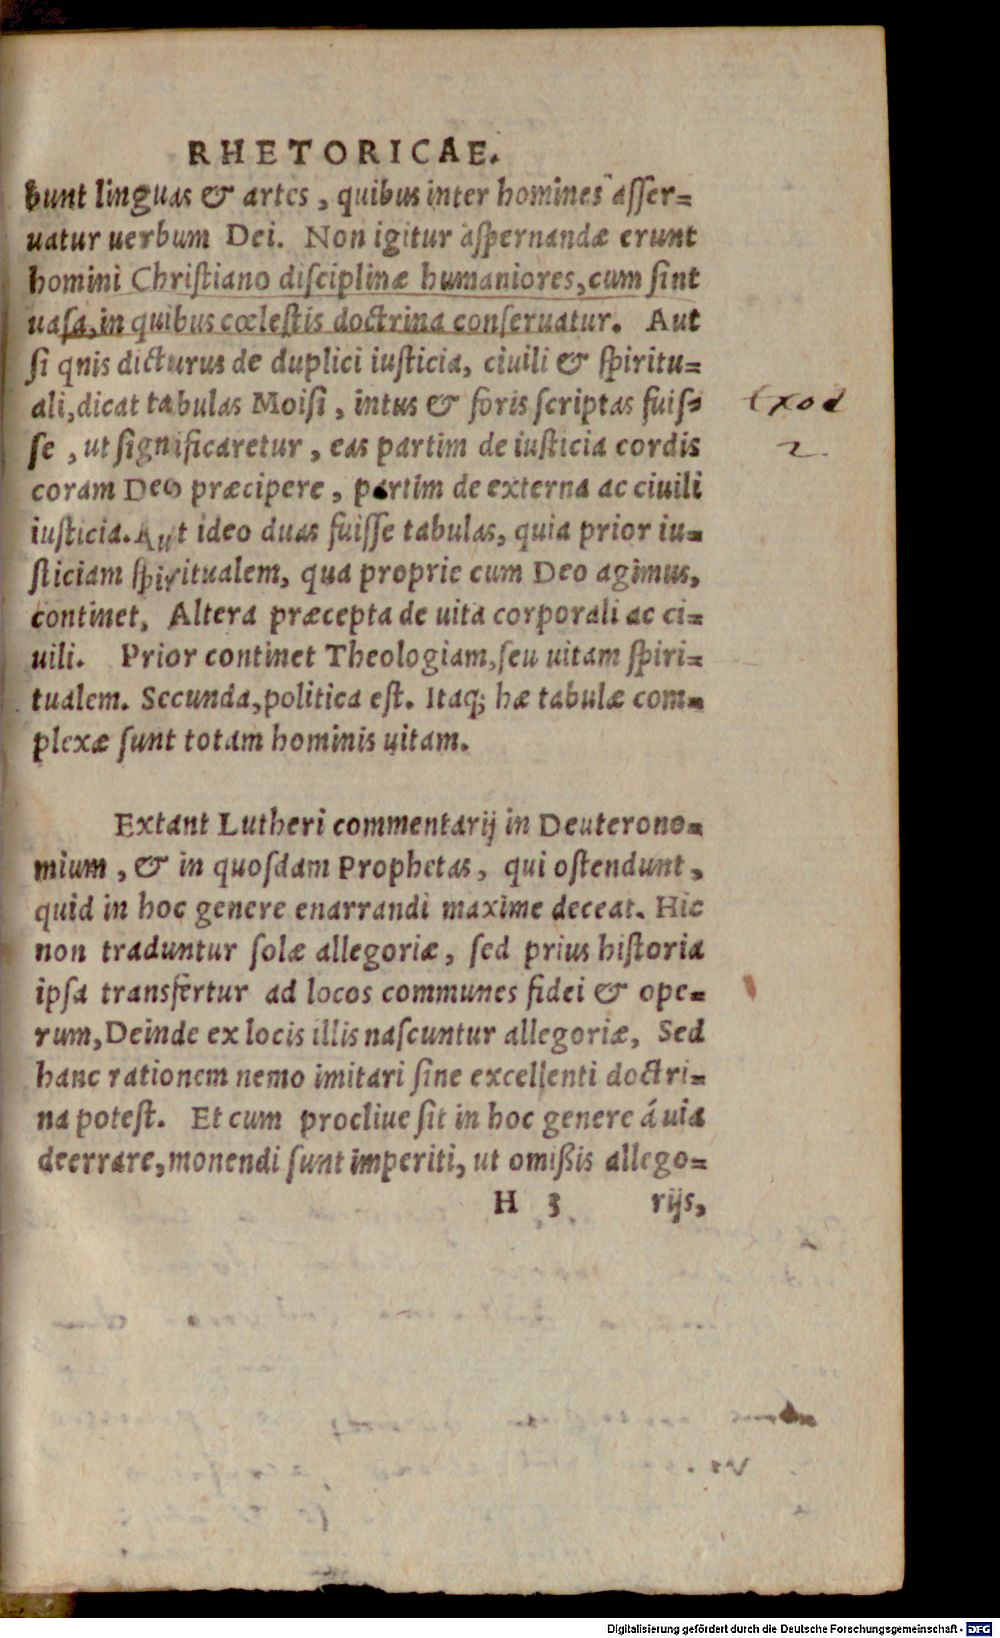 RHETORICAE.
bunt linguas & artes, quibus inter homines asser=
uatur uerbum Dei. Non igitur aspernandæ erunt
homini Christiano disciplinæ humaniores, cum sint
uasa, in quibus cœlestis doctrina conseruatur. Aut
si qnis dicturus de duplici iusticia, ciuili & spiritu=
ali, dicat tabulas Moisi, intus & foris scriptas fuis=
se, ut significaretur, eas partim de iusticia cordis
coram Deo præcipere, partim de externa ac ciuili
iusticia. Aut ideo duas fuisse tabulas, quia prior iu=
sticiam spiritualem, qua proprie cum Deo agimus,
continet, Altera præcepta de uita corporali ac ci=
uili. Prior continet Theologiam, seu uitam spiri=
tualem. Secunda, politica est. Itaq; hæ tabulæ com=
plexæ sunt totam hominis uitam.
Exod
2.
Extant Lutheri commentarij in Deuterono=
mium, & in quosdam Prophetas, qui ostendunt,
quid in hoc genere enarrandi maxime deceat. Hic
non traduntur solæ allegoriæ, sed prius historia
ipsa transfertur ad locos communes fidei & ope=
rum, Deinde ex locis illis nascuntur allegoriæ, Sed
hanc rationem nemo imitari sine excellenti doctri=
na potest. Et cum procliue sit in hoc genere á uia
deerrare, monendi sunt imperiti, ut omißis allego=
H 3 rijs,
Digitalisierung gefördert durch die Deutsche Forschungsgemeinschaft - DFG